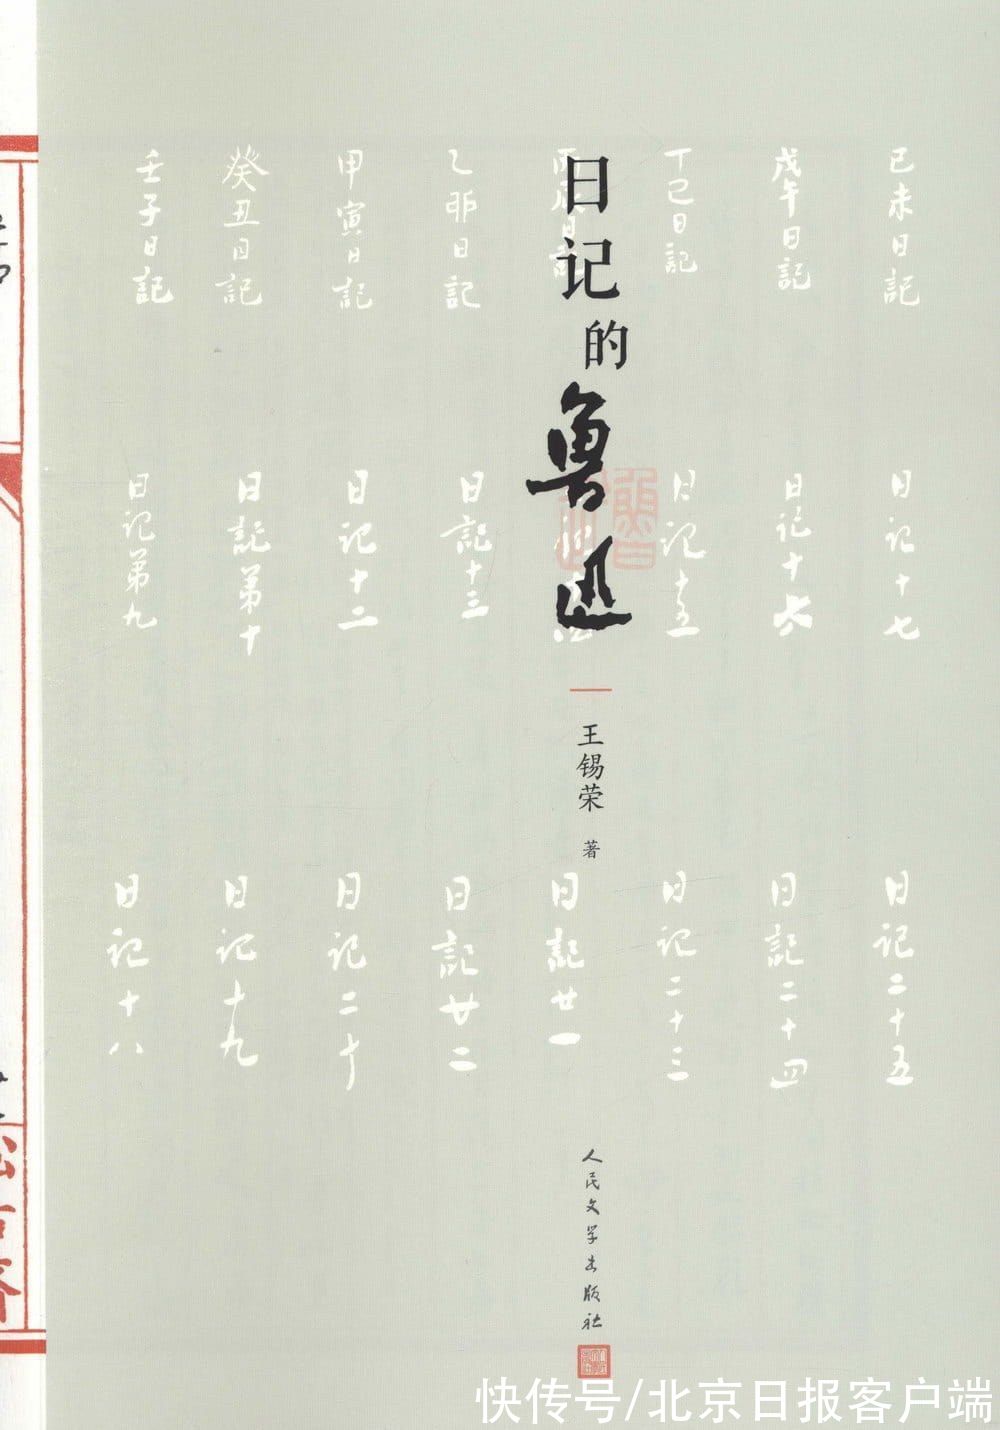 日记的鲁迅
王锡荣 著
壬子日記
癸丑日記
甲寅日記
乙卯日記
丁巳日記
戊午日記
己未日記
日记第九
日記第十
日记十二
日記十三
日记十五
日记十六
日记十七
日记十八
日记十九
日记二十
日記廿二
日記廿一
日记二十三
日記二十四
日记二十五
人民文学出版社
快传号/北京日报客户端